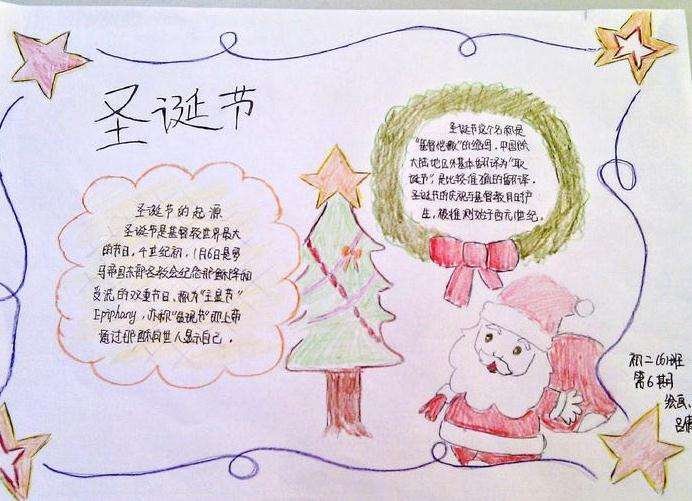 圣诞节
圣诞节的起源
圣诞节是基督教世界最大
的节日，4世纪初，1月6日是罗
马帝国东部各教会纪念耶稣降和
受洗的双重节日、称为“主显节”
Epiphany，亦称“显现节”即上帝
通过耶稣向世人显示自己。
圣诞节这个名称是
“基督弥撒”的缩写，中国
大陆地区外基本翻译为“耶
诞节”，是比较准确的翻译。
圣诞节的庆祝与基督教同时产
生，被推测始于西元1世纪。
初二(6)班
第6期
绘画、